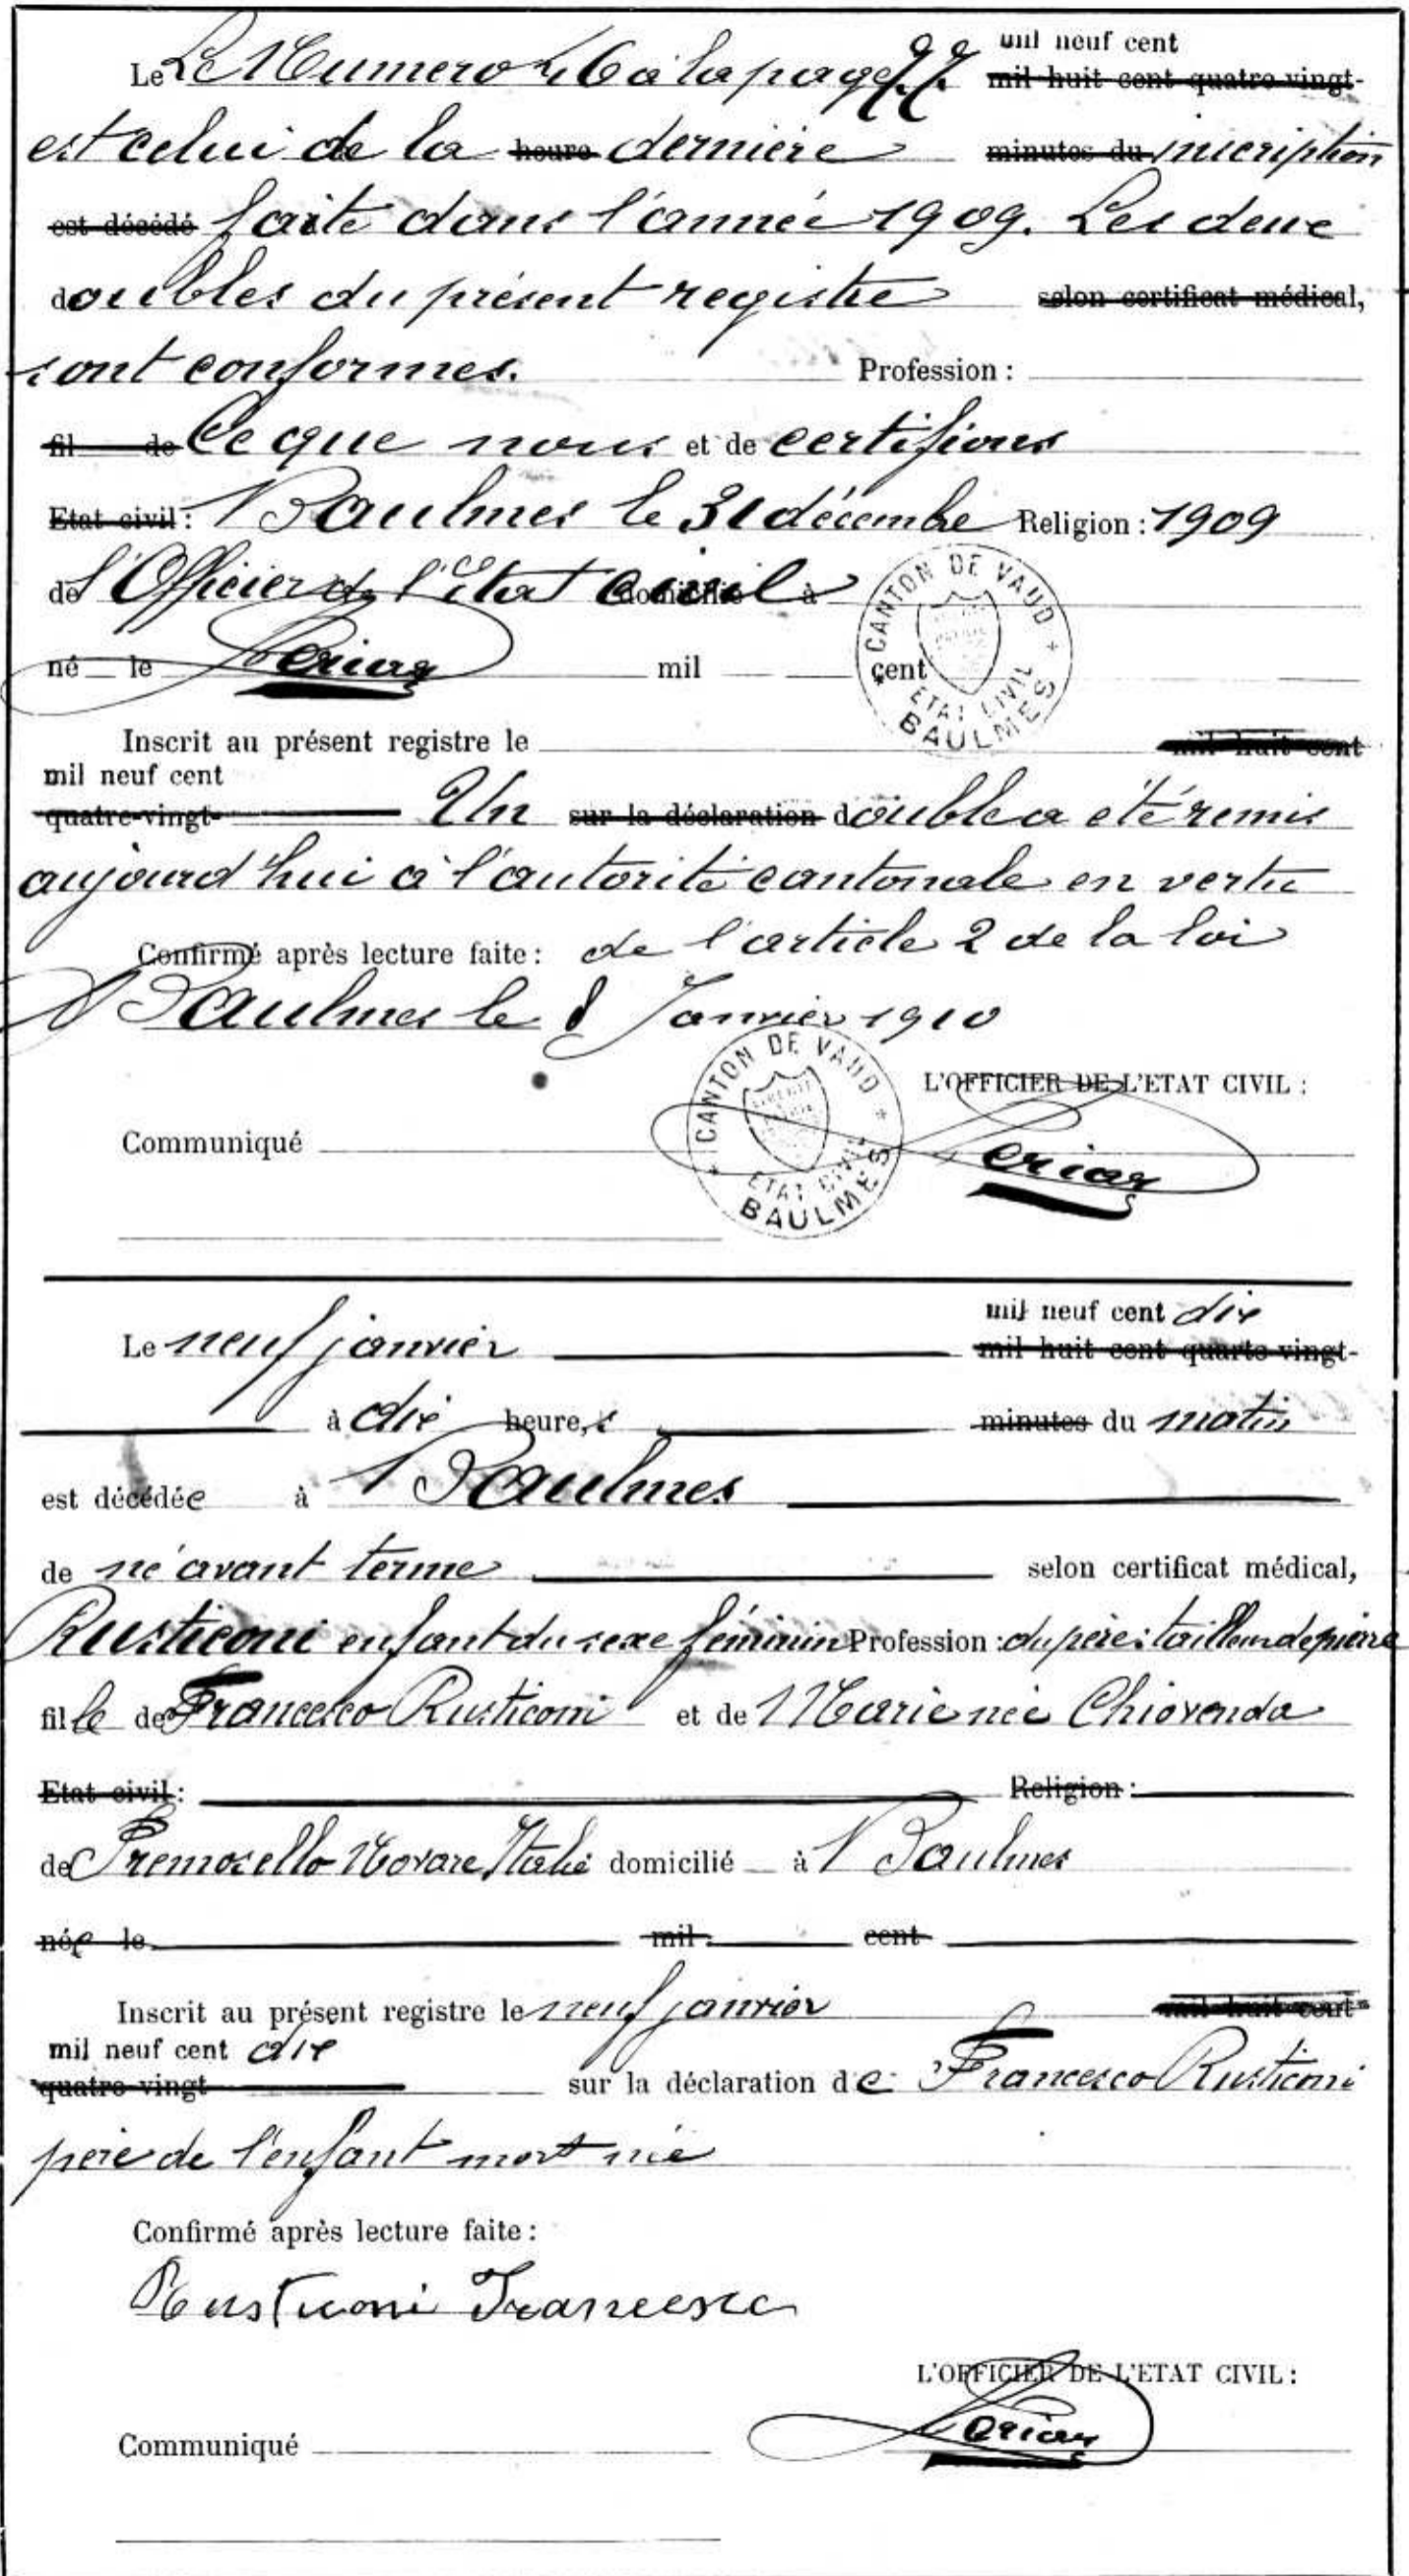 mil neuf cent
Le Le Numero 46 à la page mil huit cent quatre-vingt-
est celui de la heure dernière minutes du inscription
est décédé faite dans l'année 1909. Les deux
doubles du présent registre selon certificat médical,
sont conformes. Profession :
fil de Ce que nous et de certifions
Etat civil : Baulmes le 31 décembre Religion : 1909
de l'Officier de l'Etat Civil domicilié à
né le mil cent
CANTON DE VAUD
ETAT CIVIL
BAULMES
Inscrit au présent registre le mil huit cent
mil neuf cent
quatre-vingt- Un sur la déclaration double a été remis
aujourd'hui à l'autorité cantonale en vertu
Confirmé après lecture faite : de l'article 2 de la loi
Baulmes le 8 Janvier 1910
CANTON DE VAUD
LIBERTÉ
ETAT CIVIL
BAULMES
L'OFFICIER DE L'ETAT CIVIL :
Communiqué
mil neuf cent dix
Le neuf janvier mil huit cent quarte-vingt-
à dix heure,s minutes du matin
est décédée à Baulmes
de né avant terme selon certificat médical,
Rusticoni enfant du sexe féminin Profession : du père: tailleur de pierre
fille de Francesco Rusticoni et de Marie née Chiovenda
Etat civil : Religion :
de Premosello Novare, Italie domicilié à Baulmes
née le mil cent
Inscrit au présent registre le neuf janvier mil huit cent
mil neuf cent dix
quatre-vingt sur la déclaration de Francesco Rusticoni
père de l'enfant mort né
Confirmé après lecture faite :
Rusticoni Francesco
L'OFFICIER DE L'ETAT CIVIL :
Communiqué